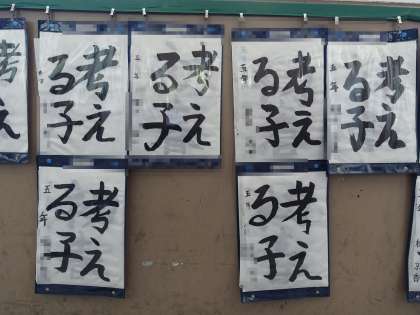 考え
考え
る子
五年
考え
る子
五年
考え
る子
五年
考え
る子
五年
考え
る子
五年
考え
る子
五年